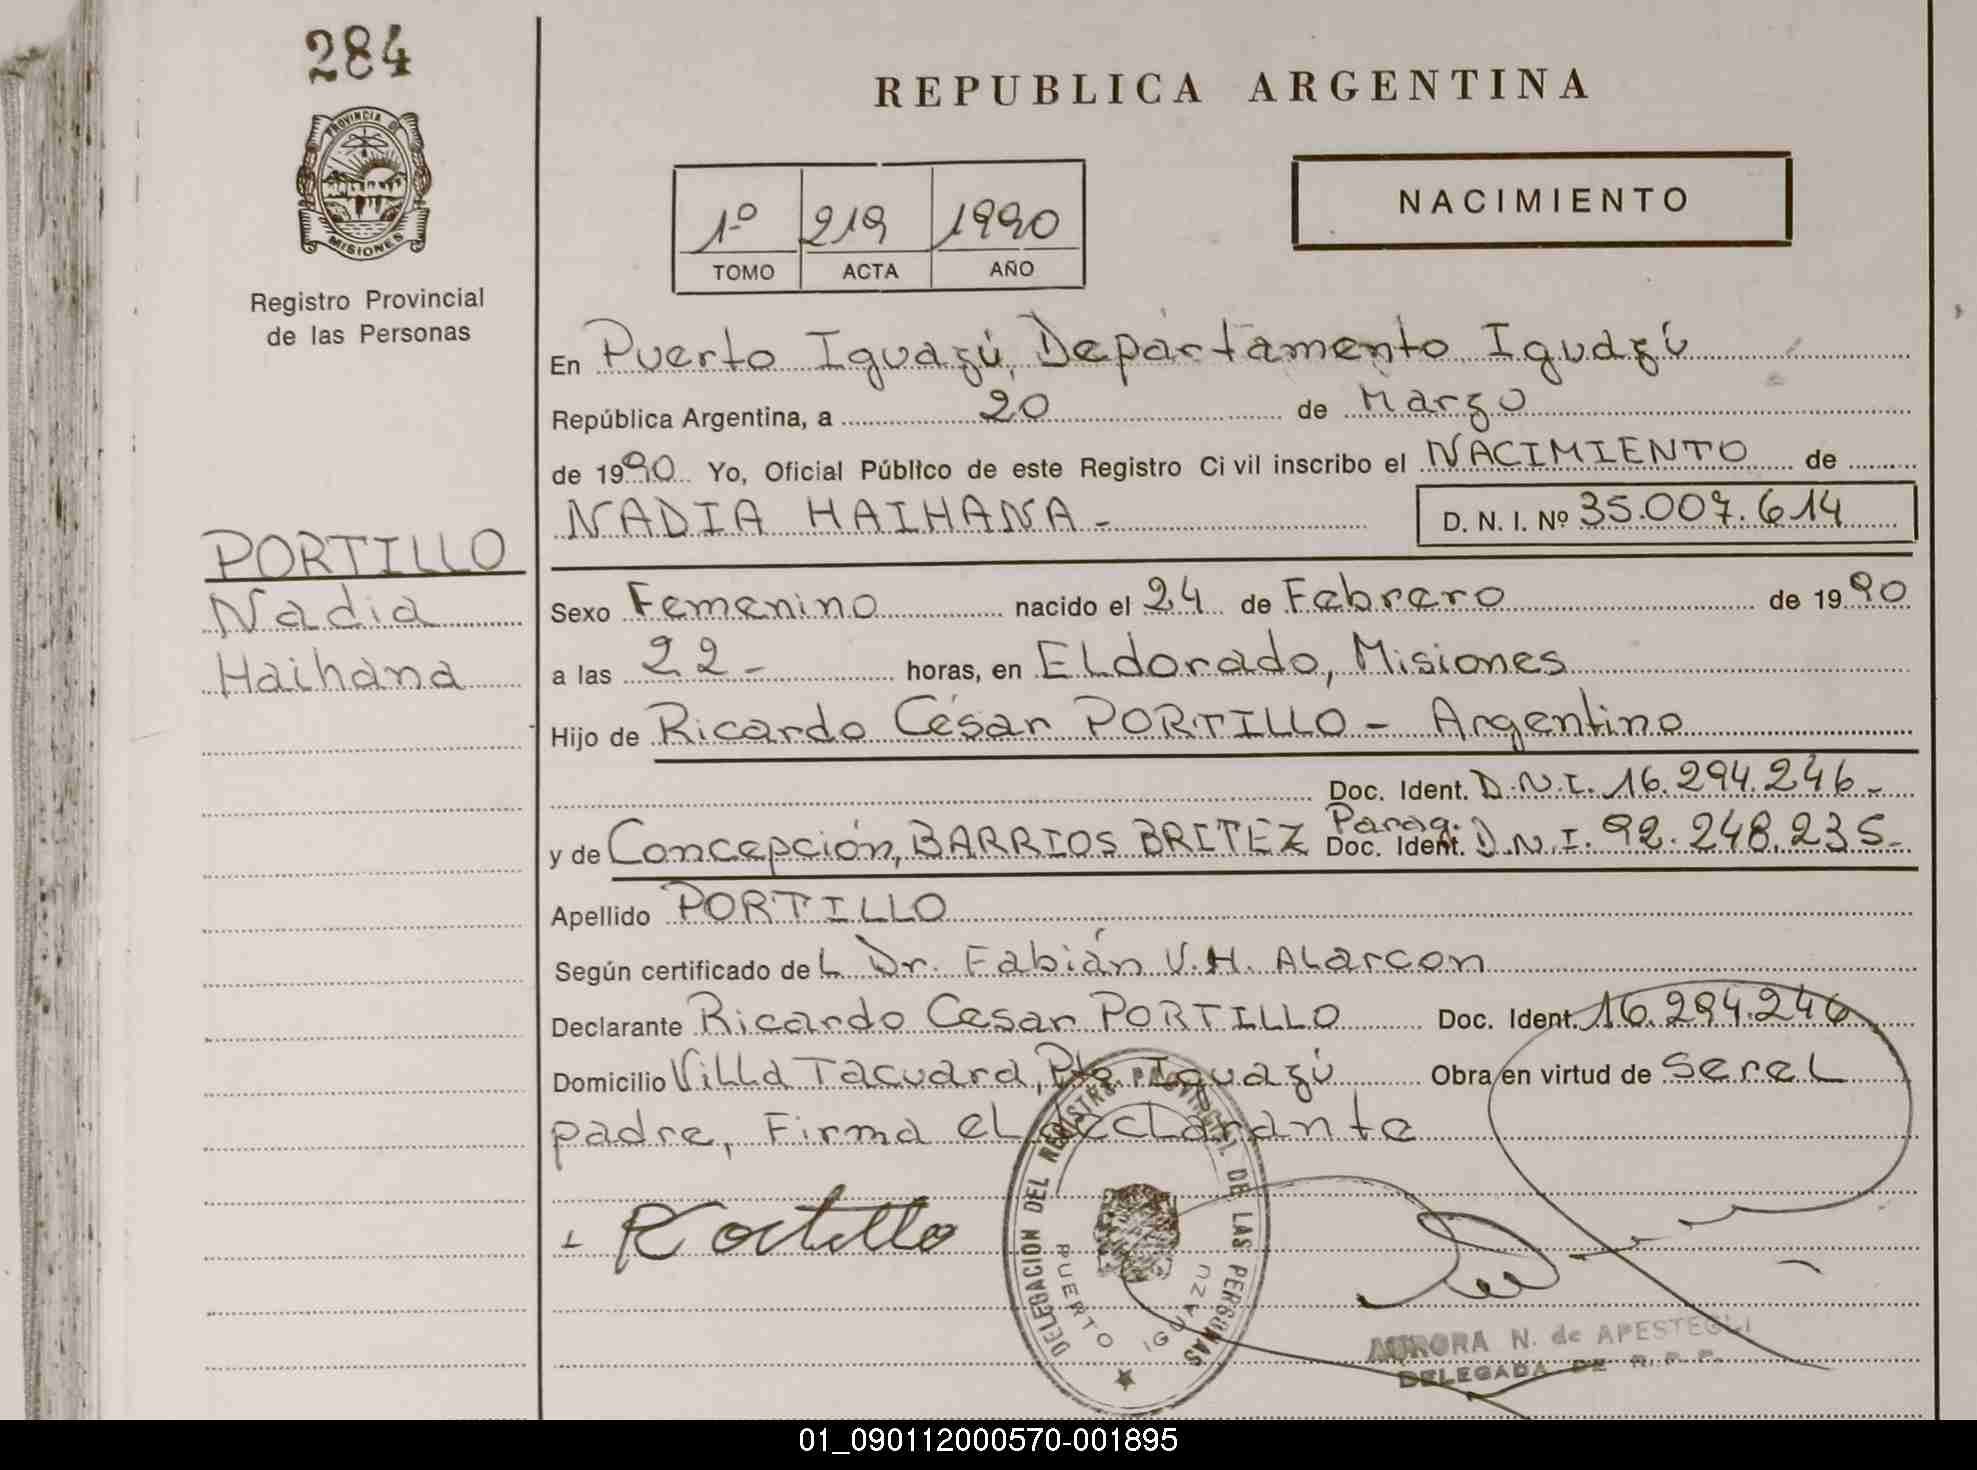 284
REPUBLICA ARGENTINA
PROVINCIA DE
MISIONES
Registro Provincial
de las Personas
1º 219 1990
TOMO ACTA AÑO
NACIMIENTO
En Puerto Iguazú, Departamento Iguazú
República Argentina, a 20 de Marzo
de 1990 Yo, Oficial Público de este Registro Civil inscribo el NACIMIENTO de
NADIA HAIHANA - D. N. I. Nº 35.007.614
PORTILLO
Nadia
Haihana
Sexo Femenino nacido el 24 de Febrero de 1990
a las 22- horas, en Eldorado, Misiones
Hijo de Ricardo César PORTILLO - Argentino
Doc. Ident. D.N.I. 16.294.246-
y de Concepción, BARRIOS BRITEZ Parag. Doc. Ident. D.N.I. 92.248.235-
Apellido PORTILLO
Según certificado del Dr. Fabián V.H. Alarcon
Declarante Ricardo Cesar PORTILLO Doc. Ident. 16.294.246
Domicilio Villa Tacuara, Pto. Iguazú Obra en virtud de ser el
padre, Firma el declarante
Portillo
DELEGACION DEL REGISTRO PROVINCIAL DE LAS PERSONAS
PUERTO IGUAZU
AURORA N. de APESTEGUI
DELEGADA DE R. P. P.
01_090112000570-001895